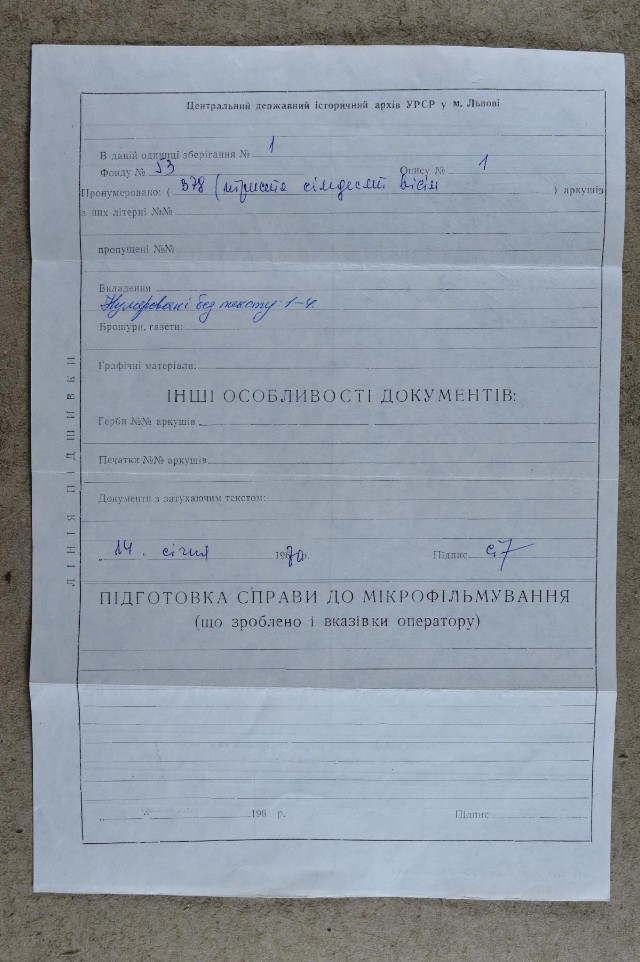 Центральний державний історичний архів УРСР у м. Львові
В даній одиниці зберігання № 1
Фонду № 53 Опису № 1
Пронумеровано: ( 378 (триста сімдесят вісім ) аркушів
з них літерні №№
пропущені №№
Вкладення
Нумеровані без тексту: 1-4.
Брошури, газети:
Графічні матеріали:
ІНШІ ОСОБЛИВОСТІ ДОКУМЕНТІВ:
Герби №№ аркушів
Печатки №№ аркушів
Документи з затухаючим текстом:
14. січня 1970 р. Підпис
ПІДГОТОВКА СПРАВИ ДО МІКРОФІЛЬМУВАННЯ
(що зроблено і вказівки оператору)
" 196 р. Підпис
ЛІНІЯ ПІДШИВКИ